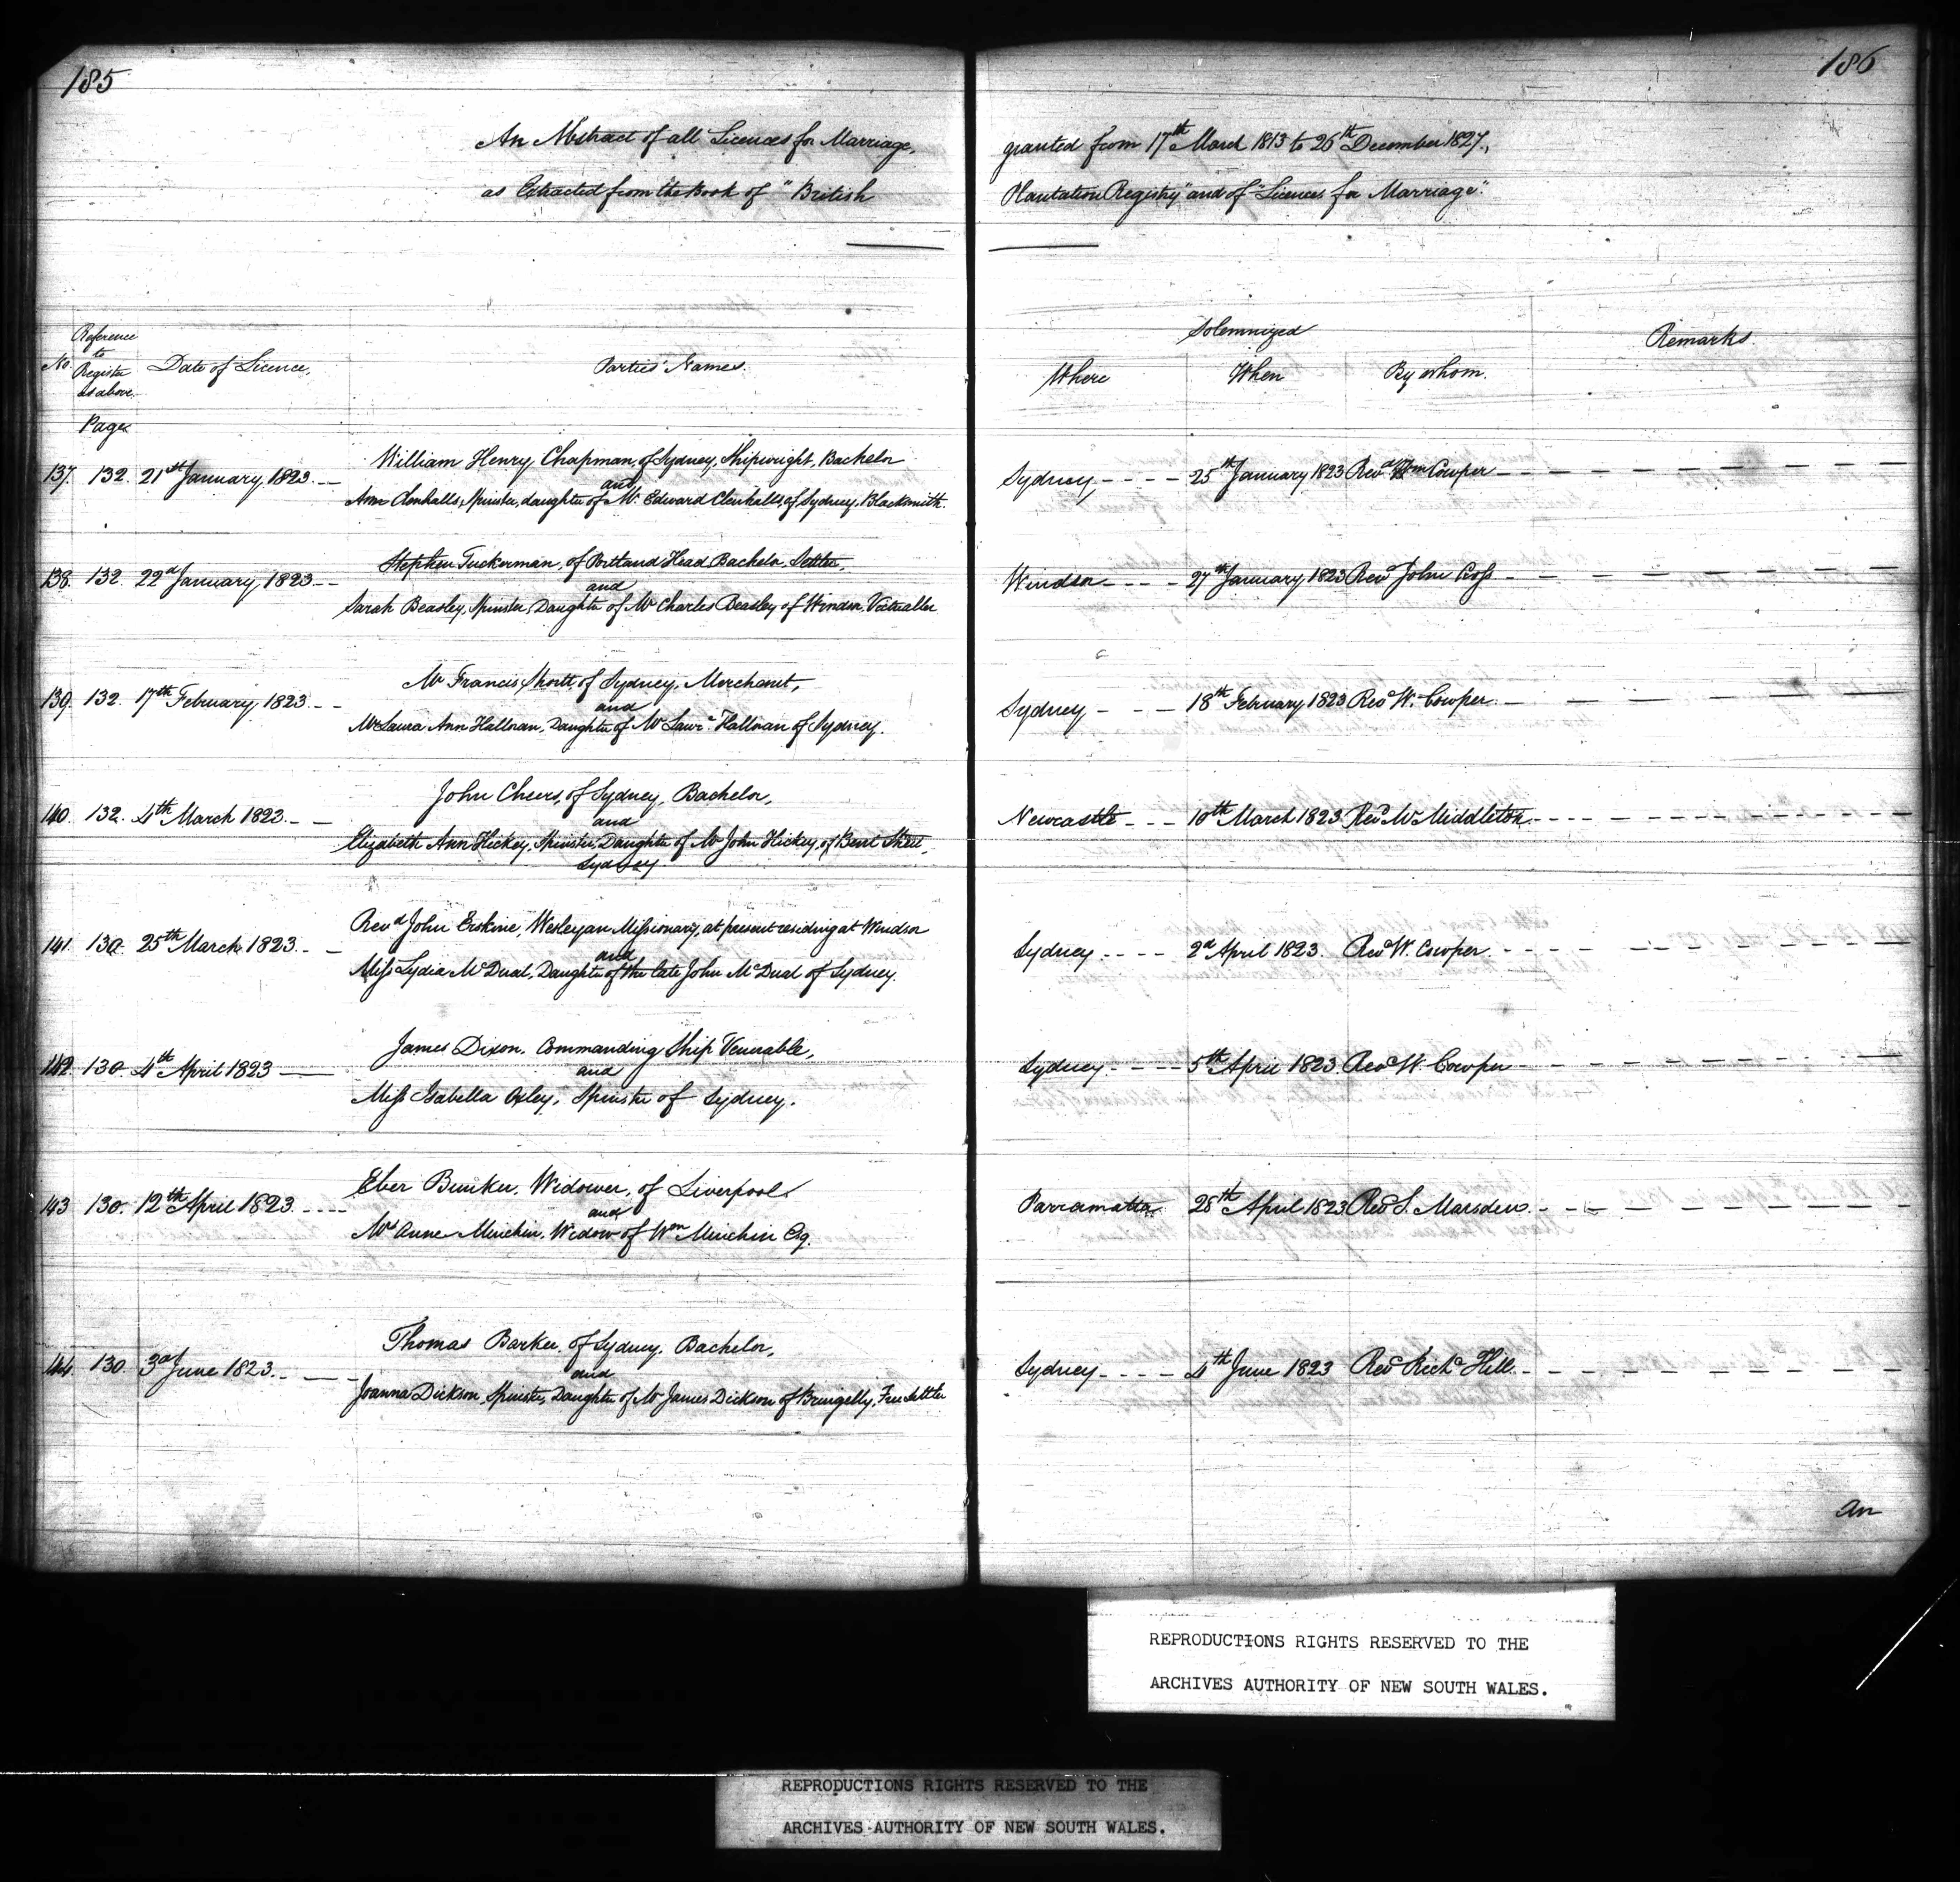 185
An Abstract of all Licences for Marriage,
as Extracted from the Book of "British
No.
Reference
to
Register
as above.
Date of Licence.
Parties' Names.
Page
137. 132. 21st January, 1823
William Henry Chapman, of Sydney, Shipwright, Bachelor
and
Ann Clenhalls, Spinster, daughter of Mr. Edward Clenhalls, of Sydney, Blacksmith.
138. 132. 22d January, 1823
Stephen Tuckerman, of Portland Head Bachelor, Settler,
and
Sarah Beasley, Spinster, Daughter of Mr Charles Beasley of Windsor, Victualler
139. 132. 17th February, 1823
Mr Francis Shortt, of Sydney, Merchant,
and
Laura Ann Hallman, Daughter of Mr Lawr. Hallman of Sydney.
140. 132. 4th March 1823.
John Cheers, of Sydney, Bachelor,
and
Elizabeth Ann Hickey, Spinster, Daughter of Mr John Hickey, of Bent Street,
Sydney
141. 130. 25th March 1823.
Revd John Erskine, Wesleyan Missionary, at present residing at Windsor
and
Miss Lydia McDual, Daughter of the late John McDual of Sydney.
142. 130. 4th April 1823
James Dixon, Commanding Ship Venerable,
and
Miss Isabella Oxley, Spinster of Sydney.
143 130. 12th April 1823.
Eber Bunker, Widower, of Liverpool
and
Mrs Anne Minchin, Widow of Wm Minchin Esq.
144. 130. 3d June 1823.
Thomas Barker, of Sydney, Bachelor,
and
Joanna Dickson, Spinster, Daughter of Mr James Dickson of Bringelly, Free Settler
186
granted from 17th March 1813 to 26th December 1827,
Plantation Registry" and of "Licences for Marriage".
Solemnized
Where When By whom.
Remarks.
Sydney, 25th January 1823 Revd. Wm Cowper
Windsor 27th January, 1823 Revd John Cross
Sydney 18th February 1823 Revd W. Cowper
Newcastle 10th March 1823 Revd Mr Middleton
Sydney 2d April 1823. Revd W. Cowper.
Sydney 5th April 1823 Revd W. Cowper
Parramatta 28th April 1823 Revd S. Marsden.
Sydney 4th June 1823 Revd Richd Hill.
An
REPRODUCTIONS RIGHTS RESERVED TO THE
ARCHIVES AUTHORITY OF NEW SOUTH WALES.
REPRODUCTIONS RIGHTS RESERVED TO THE
ARCHIVES AUTHORITY OF NEW SOUTH WALES.